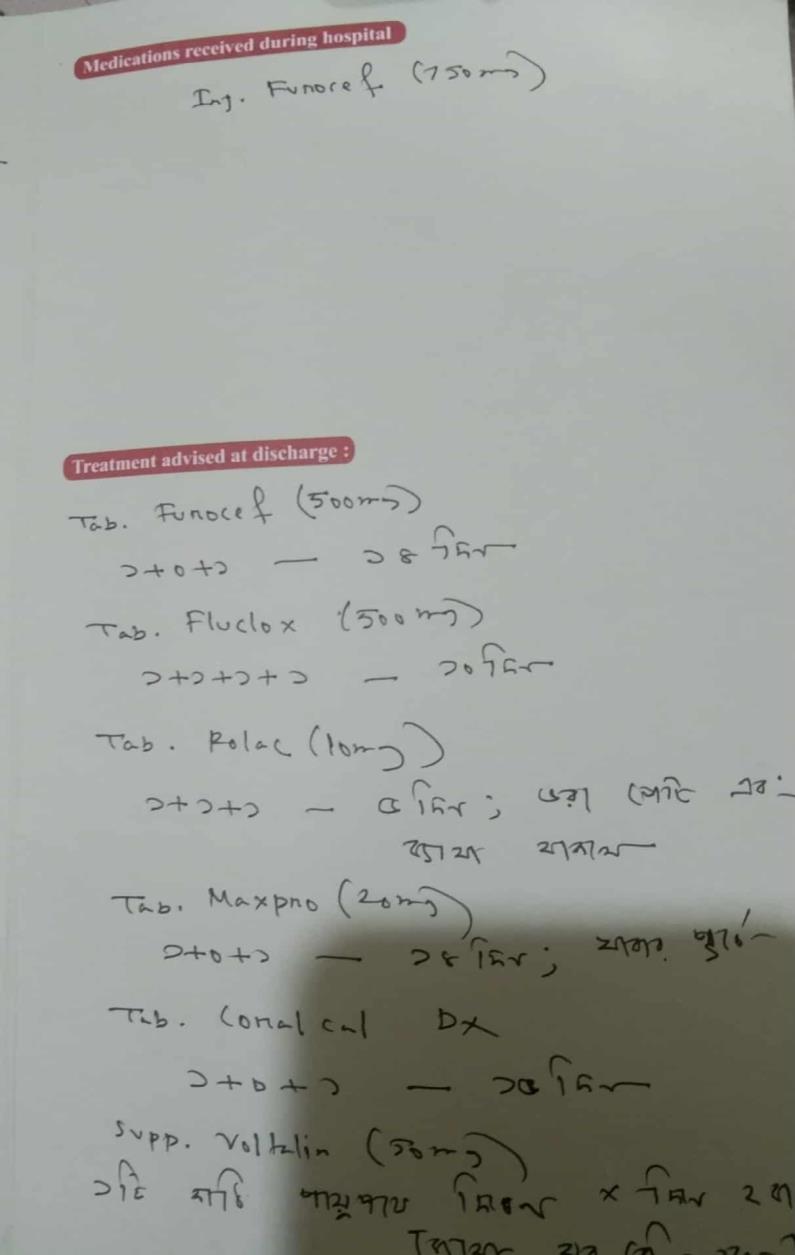 Medications received during hospital
Inj. Furocef (750mg)
Treatment advised at discharge :
Tab. Furocef (500mg)
১+০+১ — ১৪ দিন
Tab. Fluclox (500mg)
১+১+১+১ — ১০ দিন
Tab. Rolac (10mg)
১+১+১ — ৫ দিন; ভরা পেটে এবং
ব্যাথা থাকলে
Tab. Maxpro (20mg)
১+০+১ — ১৪ দিন; খাবার পূর্বে
Tab. Coralcal Dx
১+০+১ — ১৫ দিন
Supp. Voltalin (50mg)
১টি কাঠি পায়ুপথে দিবেন × দিনে ২ বা